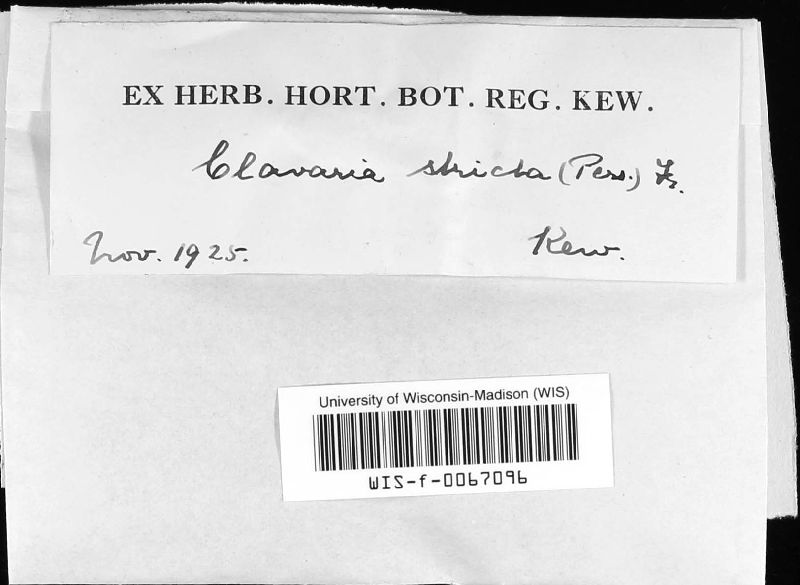 EX HERB. HORT. BOT. REG. KEW.
Clavaria stricta (Pers.) Fr.
Nov. 1925. Kew.
University of Wisconsin-Madison (WIS)
WIS-f-0067096